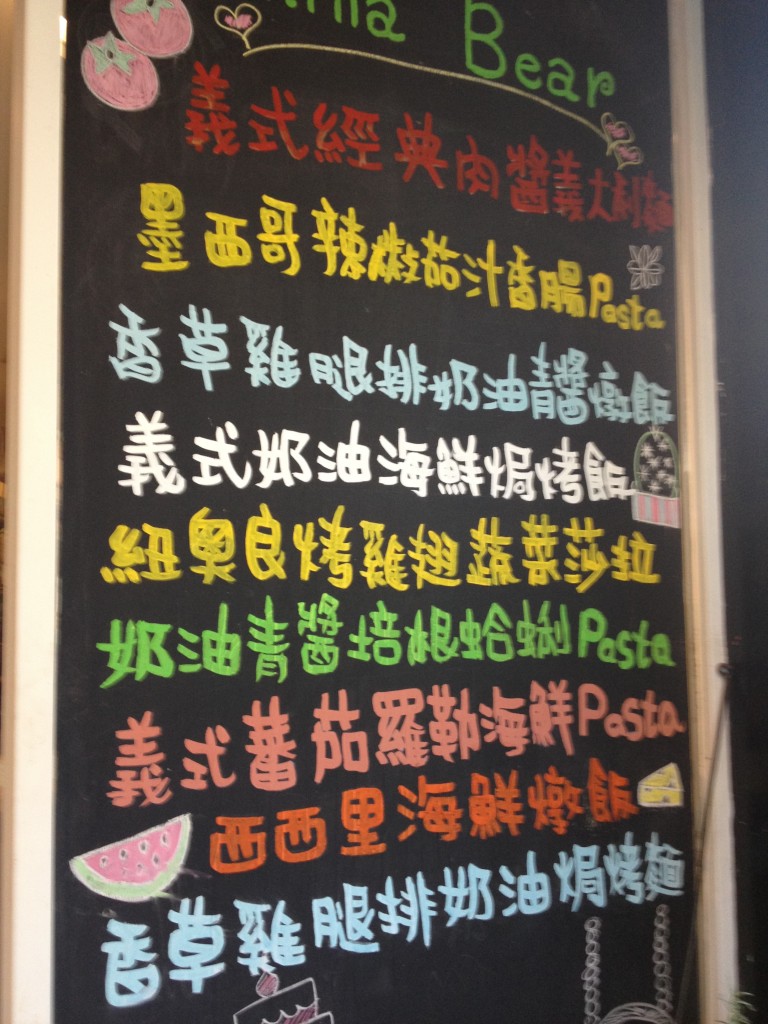 Bear
義式經典肉醬義大利麵
墨西哥辣嫩茄汁香腸Pasta
香草雞腿排奶油青醬燉飯
義式奶油海鮮焗烤飯
紐奧良烤雞翅蔬菜莎拉
奶油青醬培根蛤蜊Pasta
義式蕃茄羅勒海鮮Pasta
西西里海鮮燉飯
香草雞腿排奶油焗烤麵